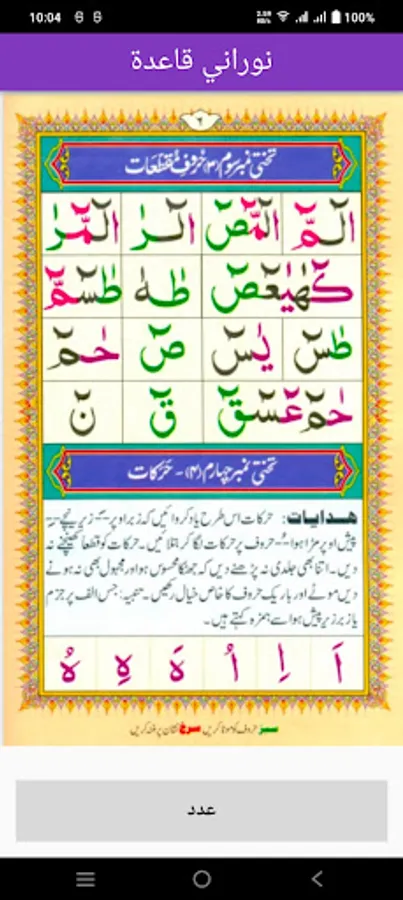 10:04 2.59 KB/S 100%
نوراني قاعدة
۶
تختی نمبر سوم (۳) حُروفِ مُقَطَّعَات
الٓمّٓ الٓمّٓصٓ الٓرٰ الٓمّٓرٰ
كٓهٰيٰعٓصٓ طٰهٰ طٰسٓمّٓ
طٰسٓ يٰسٓ صٓ حٰمٓ
حٰمٓ عٓسٓقٓ قٓ نٓ
تختی نمبر چہارم (۴) - حَرَکَات
ھدایات: حرکات اس طرح یاد کروائیں کہ زبر اوپر ـَـ زیر نیچے ـِـ
پیش اوپر مڑا ہوا ـُـ حروف پر حرکات لگا کر بتلائیں۔ حرکات کو قطعاً کھینچنے نہ
دیں۔ اتنا بھی جلدی نہ پڑھنے دیں کہ جھٹکا محسوس ہو اور مجہول بھی نہ ہونے
دیں موٹے اور باریک حروف کا خاص خیال رکھیں۔ تنبیہ: جس الف پر جزم
یا زبر زیر پیش ہو اسے ہمزہ کہتے ہیں۔
اَ اِ اُ هَ هِ هُ
سبز حروف کو موٹا کریں سرخ نشان پر غنہ کریں
عدد